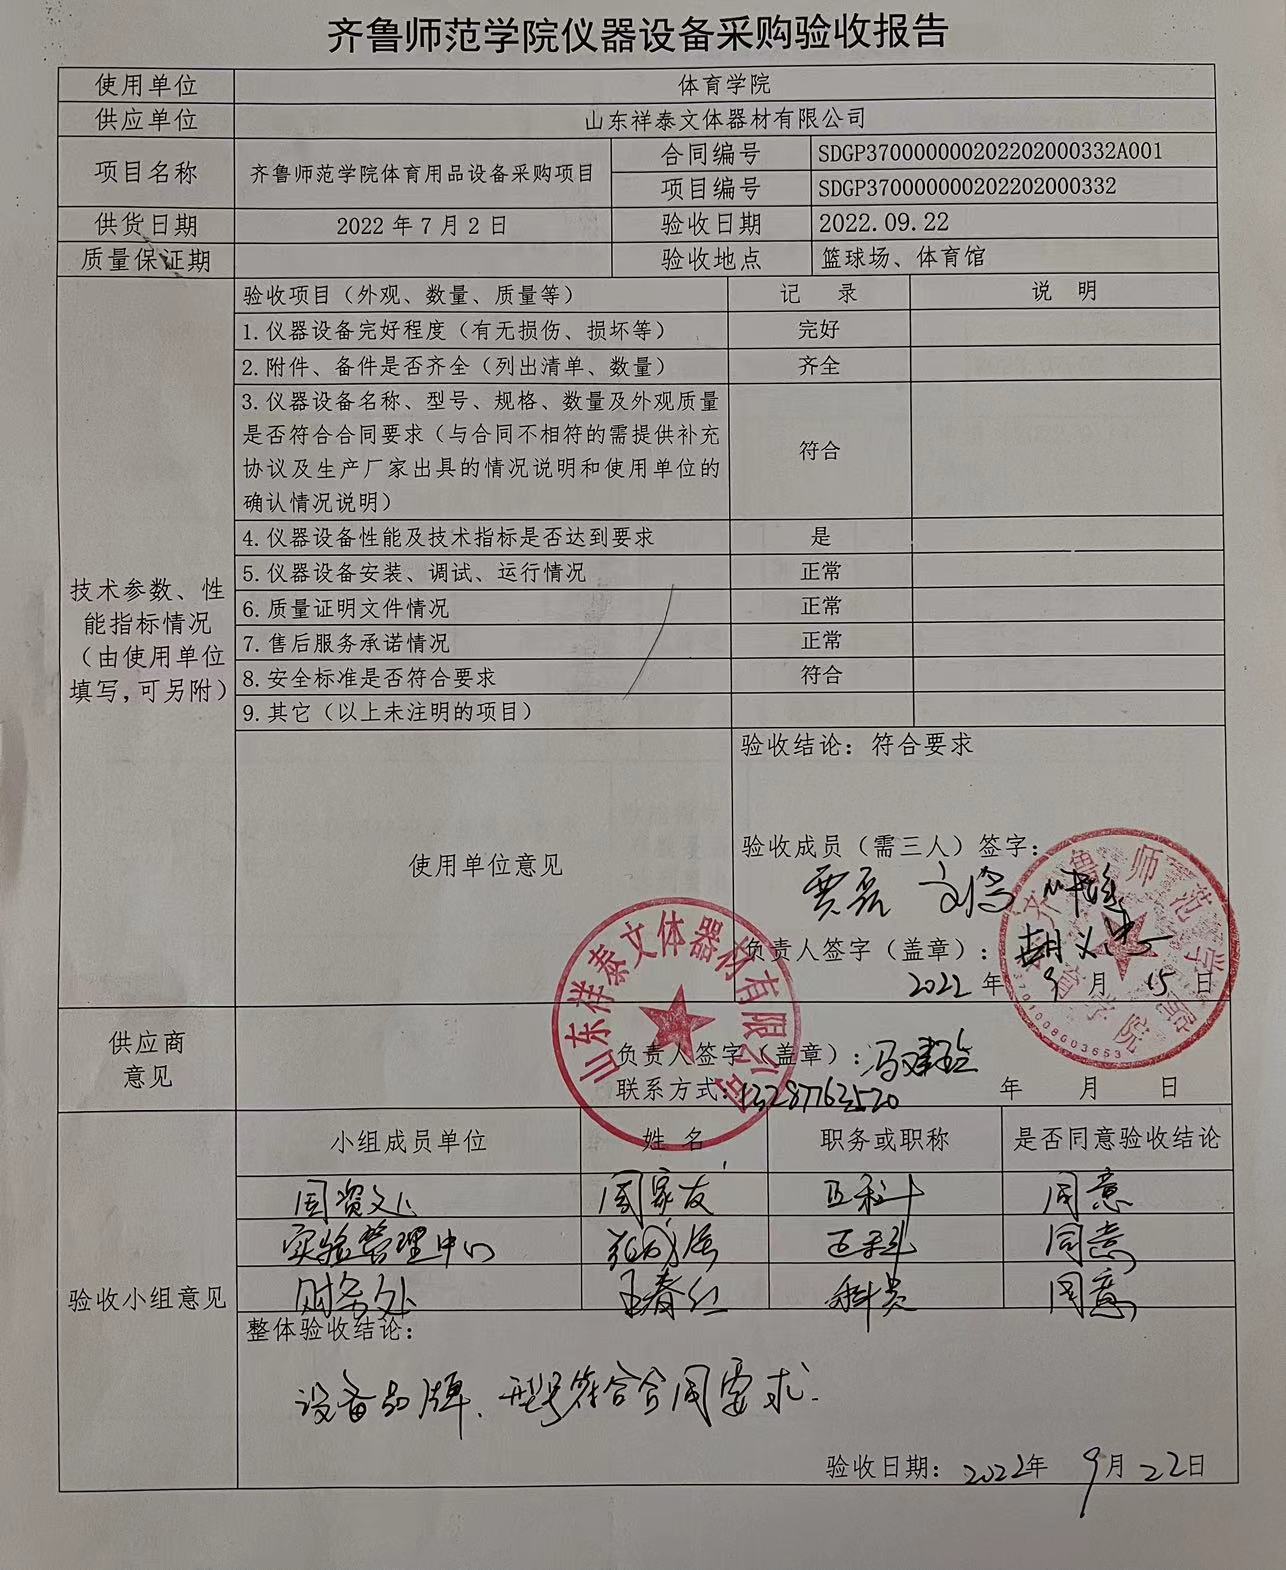 齐鲁师范学院仪器设备采购验收报告
使用单位 体育学院
供应单位 山东祥泰文体器材有限公司
项目名称 齐鲁师范学院体育用品设备采购项目 合同编号 SDGP370000000202202000332A001
项目编号 SDGP370000000202202000332
供货日期 2022年7月2日 验收日期 2022.09.22
质量保证期 验收地点 篮球场、体育馆
验收项目（外观、数量、质量等） 记 录 说 明
1.仪器设备完好程度（有无损伤、损坏等） 完好
2.附件、备件是否齐全（列出清单、数量） 齐全
3.仪器设备名称、型号、规格、数量及外观质量
是否符合合同要求（与合同不相符的需提供补充
协议及生产厂家出具的情况说明和使用单位的
确认情况说明） 符合
4.仪器设备性能及技术指标是否达到要求 是
5.仪器设备安装、调试、运行情况 正常
6.质量证明文件情况 正常
7.售后服务承诺情况 正常
8.安全标准是否符合要求 符合
9.其它（以上未注明的项目）
技术参数、性
能指标情况
（由使用单位
填写,可另附）
使用单位意见
验收结论：符合要求
验收成员（需三人）签字：
贾磊
负责人签字（盖章）：
2022年9月15日
齐鲁师范学院
体育学院
3701008603653
山东祥泰文体器材有限公司
供应商
意见
负责人签字（盖章）：
联系方式：13287763520 年 月 日
验收小组意见
小组成员单位 姓名 职务或职称 是否同意验收结论
国资文 周家友 正科 同意
实验管理中心 正科 同意
财务处 王春红 科员 同意
整体验收结论：
设备品牌、型号符合合同要求.
验收日期：2022年9月22日